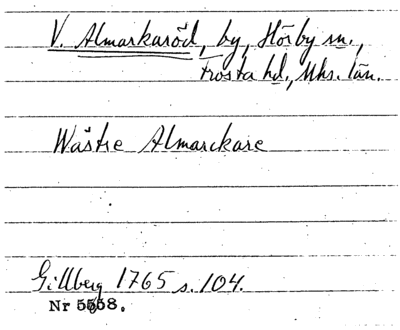 V. Almarkaröd, by, Hörby sn.,
Frosta hd., Mhs. län.
Wästre Almarckare
Gillberg 1765 s. 104.
Nr